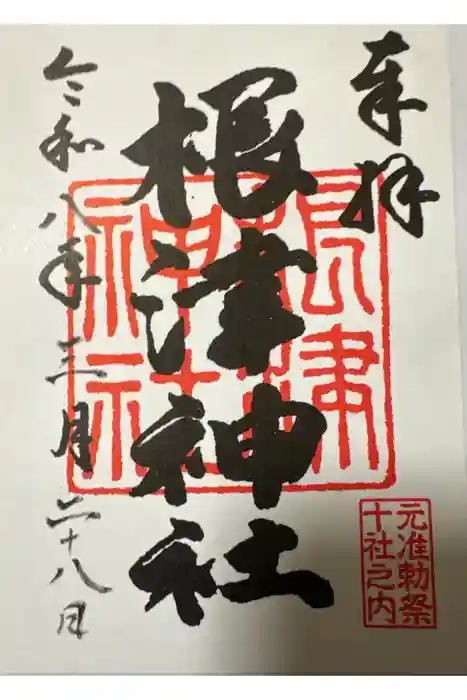 奉拝
根津神社
根津
神社
元准勅祭
十社之内
令和八年三月二十八日